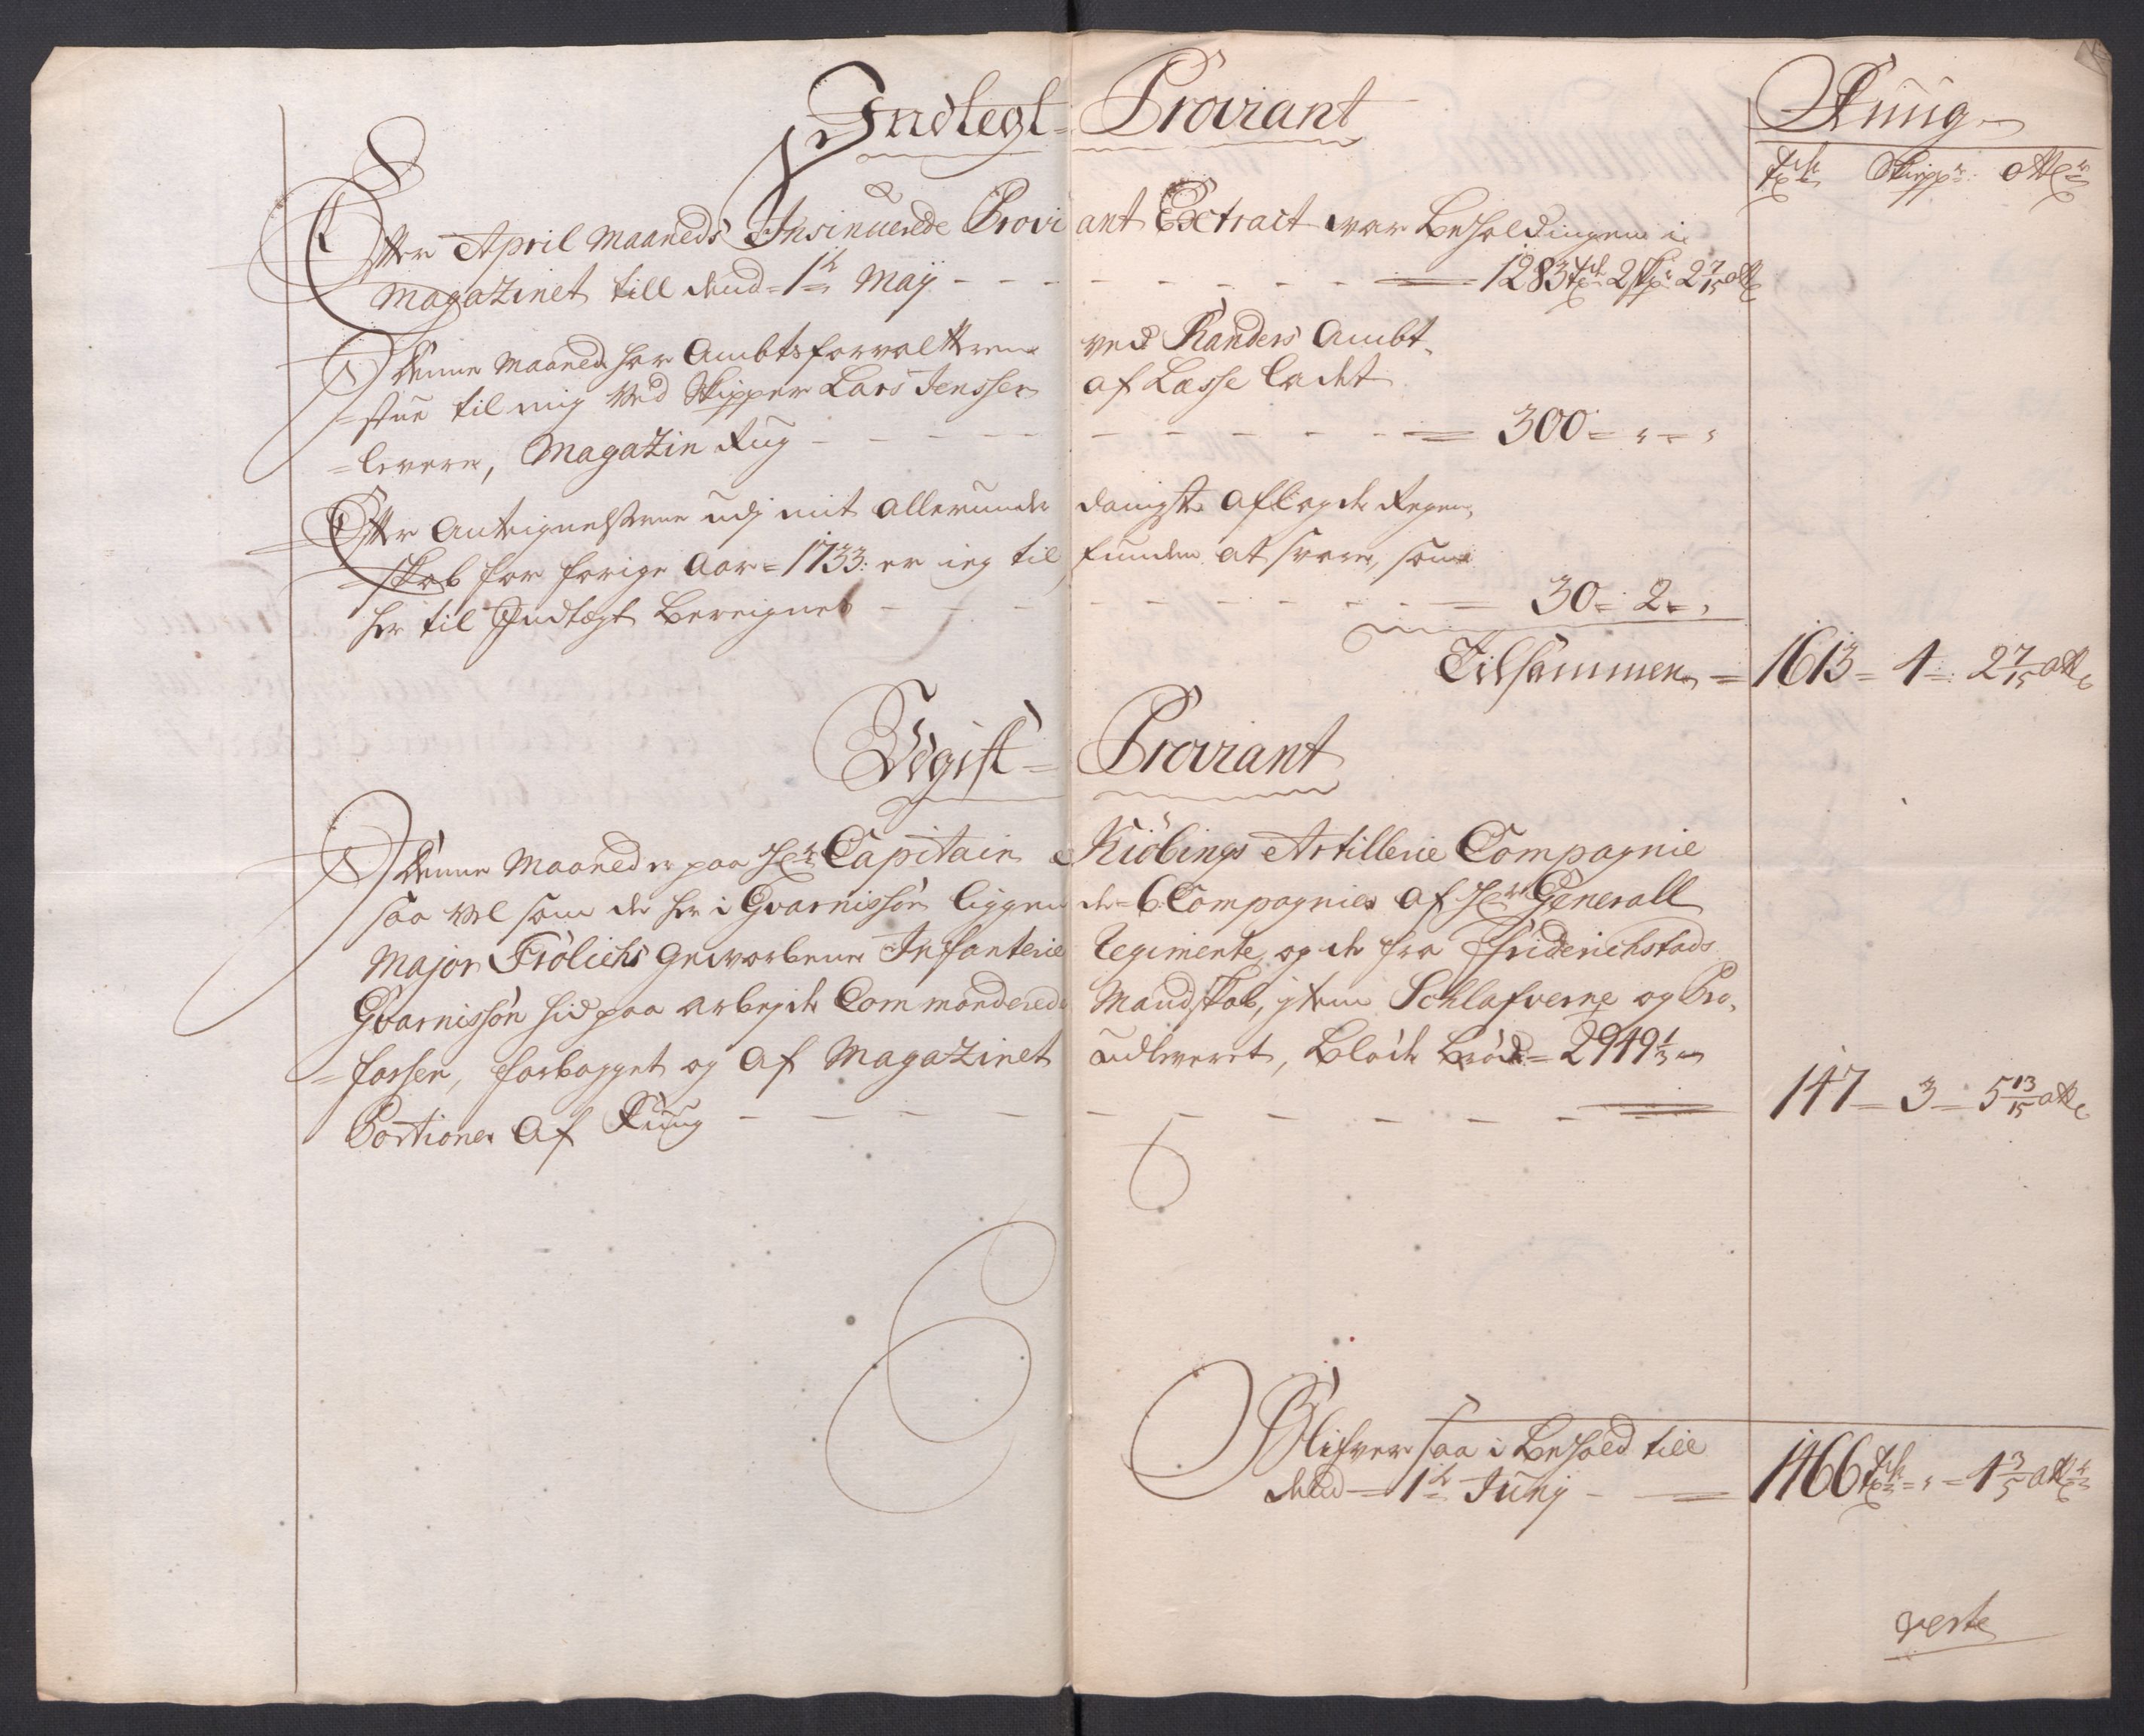 Indtegt Proviant
Ruug
Tdr Skiepr: ottr
Efter April Maaneds Insinuerede Proviant Extract war Beholdingen i
Magazinet till dend 1te Maÿ - - - - - - = 1283 tdr 2 skpr 2 7/15 ott
I denne Maaned har Ambtsforvalteren ved Randers Ambt
til mig Ved Skipper Lars Jenssen af Læssø ladet
levere, Magazin Rug - - - - - = 300 = „ = „
Efter Antegnelserne udj mit allerunderdanigste aflagde Regen-
skab for forige Aar = 1733: er ieg tilfunden at svare, som
her til Indtegt Bereignes - - - - - = 30 = 2 = „
Tilsammen = 1613 = 4 = 2 7/15 ott
Udgift = Proviant
I denne Maaned er paa Hr Capitain Kiöbings Artillerie Compagnie
saa vel som de her i Gvarnisson liggende 6 Compagnier af Hr Generall
Major Frölichs Gevorbene Infanterie Regimente, og de fra Friderichstads
Gvarnisson hid paa arbejde Commanderede Mandskab, jtem Schlafverne og Pro-
fossen, forbagget og af Magazinet udleveret, Bløde Brød = 2949 1/3
Portioner af Ruug - - - - - - = 147 = 3 = 5 13/15 ott
Blifver saa i Behold till
dend = 1te Junj - = 1466 tdr = „ = 4 3/5 ottr
verte